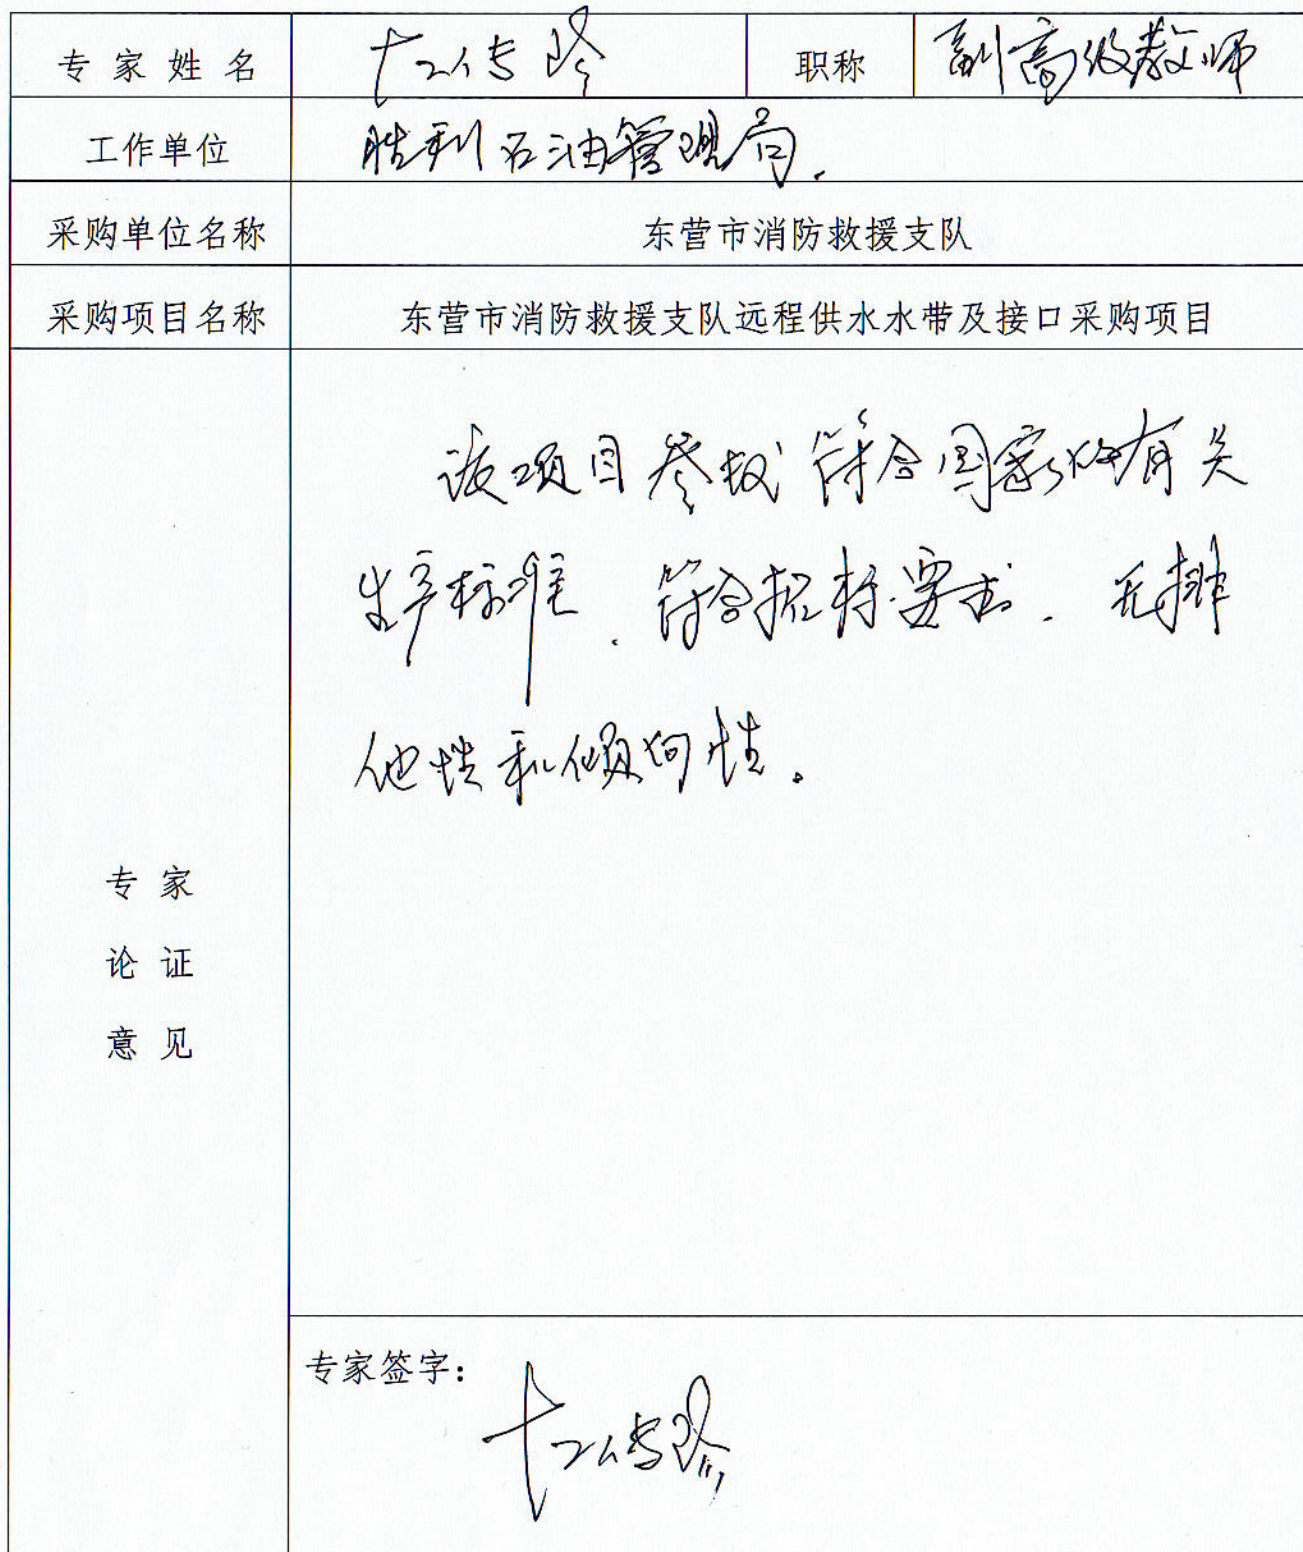 专家姓名 职称 副高级教师
工作单位 胜利石油管理局.
采购单位名称 东营市消防救援支队
采购项目名称 东营市消防救援支队远程供水水带及接口采购项目
该项目参数符合国家的有关
生产标准、符合招标要求.无排
他性和倾向性。
专家
论证
意见
专家签字: